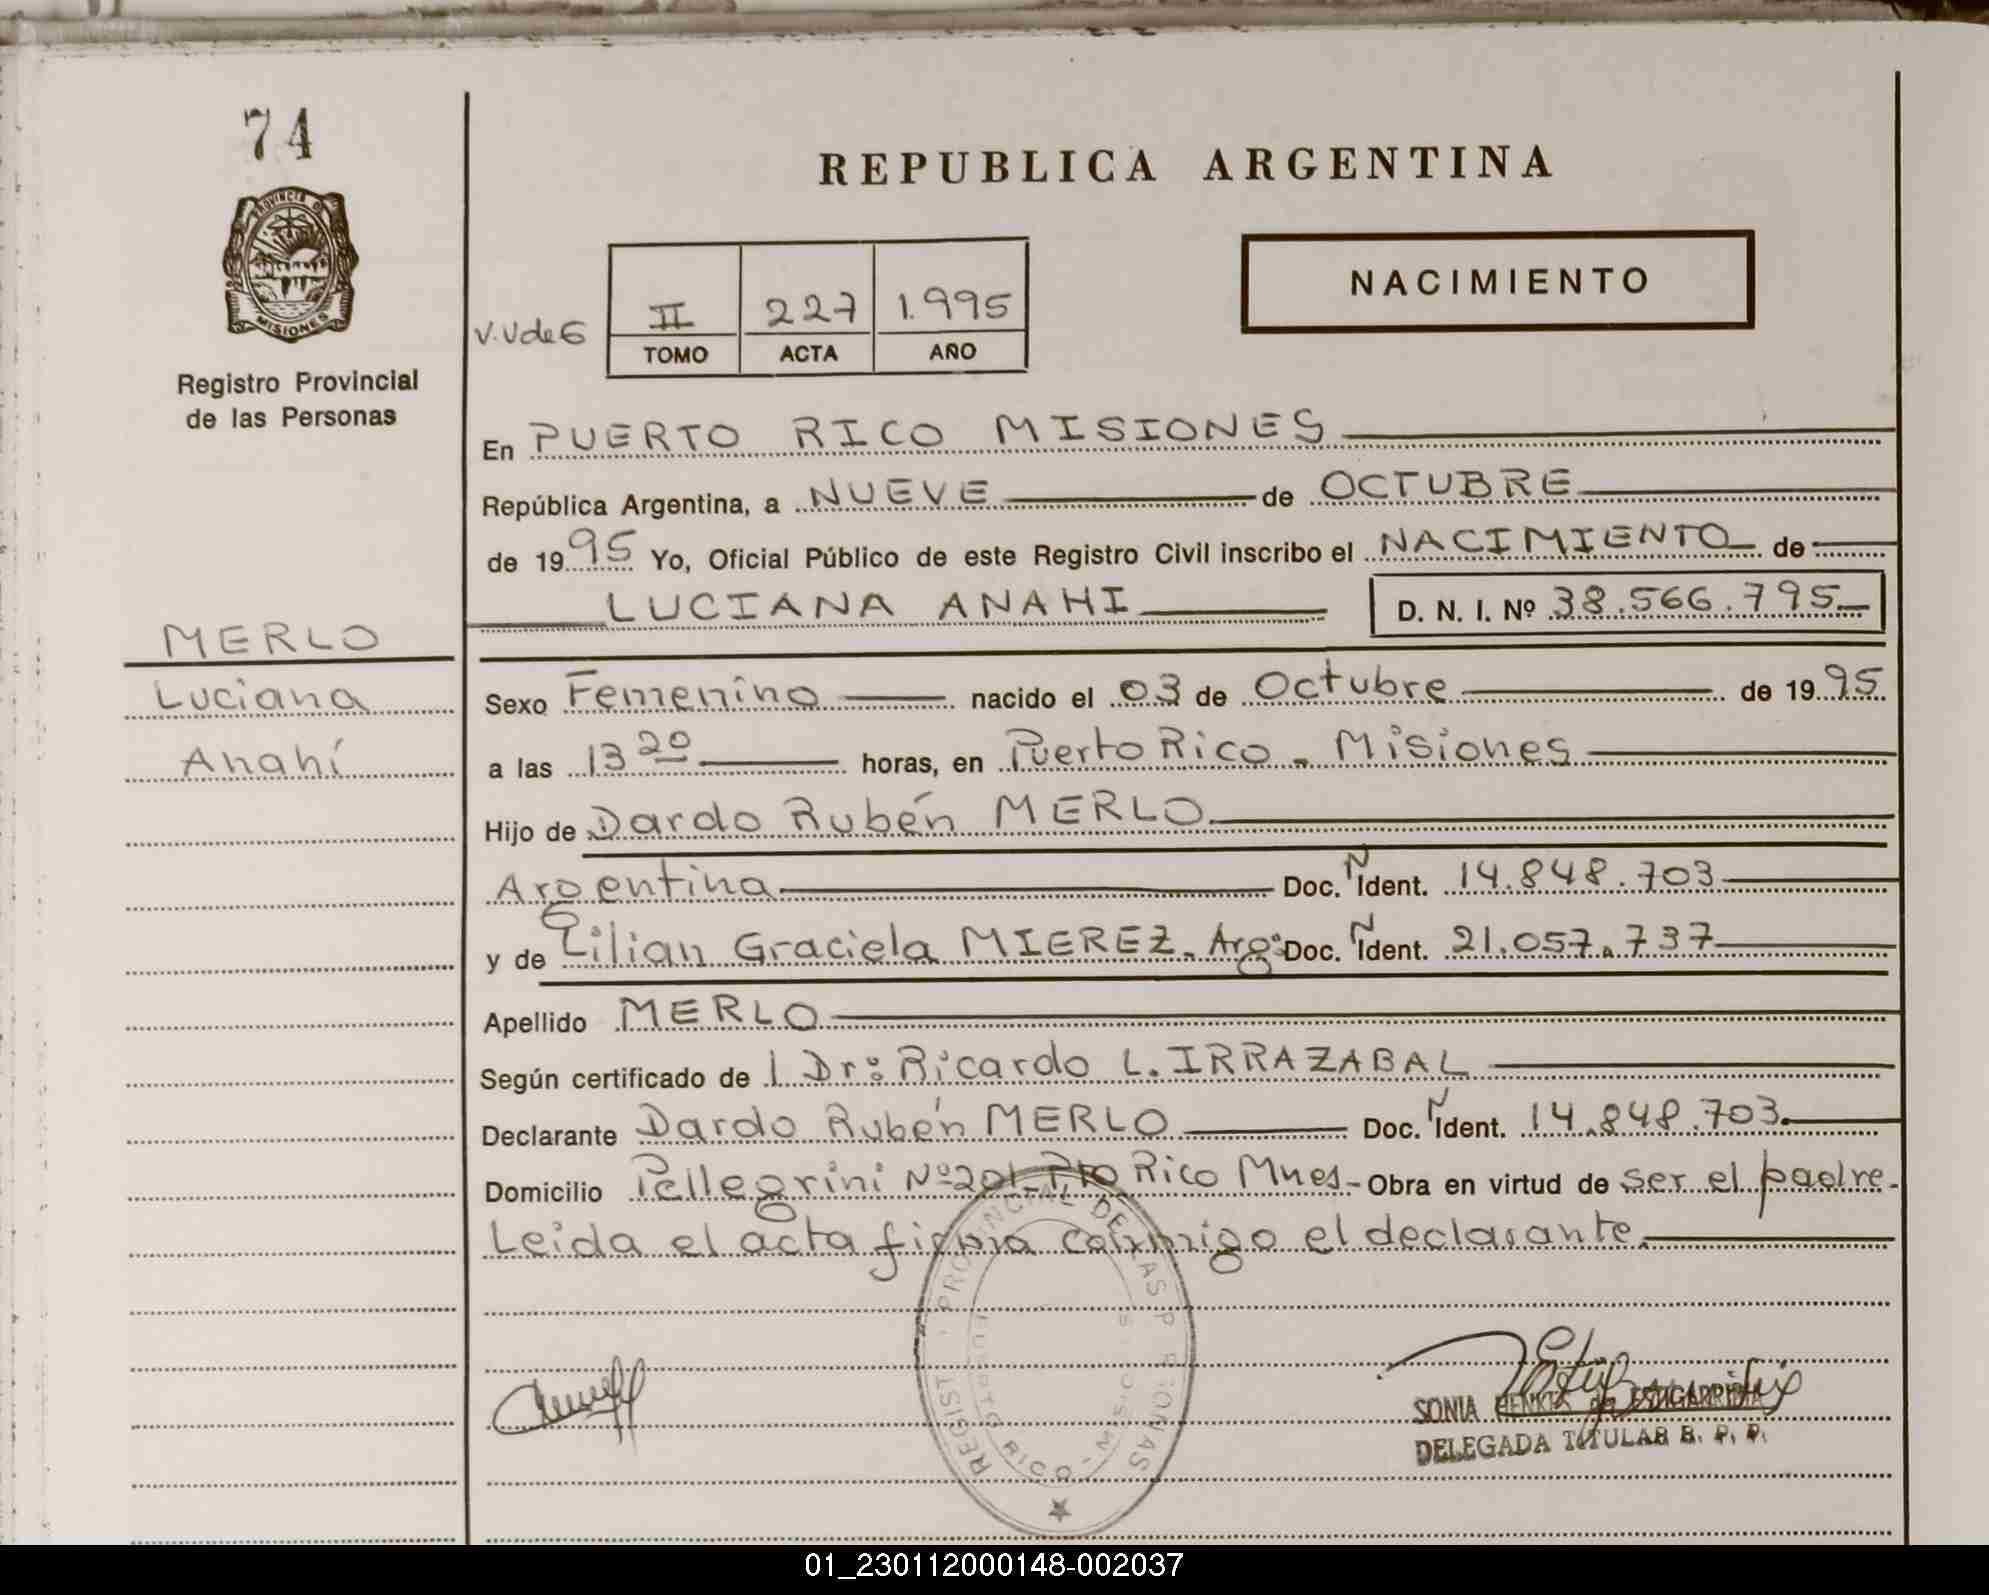 74
REPUBLICA ARGENTINA
PROVINCIA DE
MISIONES
Registro Provincial
de las Personas
V.Ude6
II 227 1.995
TOMO ACTA AÑO
NACIMIENTO
En PUERTO RICO MISIONES
República Argentina, a NUEVE de OCTUBRE
de 1995 Yo, Oficial Público de este Registro Civil inscribo el NACIMIENTO de
LUCIANA ANAHI D. N. I. Nº 38.566.795
MERLO
Luciana
Anahí
Sexo Femenino nacido el 03 de Octubre de 1995
a las 13 20 horas, en Puerto Rico - Misiones
Hijo de Dardo Rubén MERLO
Argentina Doc. Ñ Ident. 14.848.703
y de Lilian Graciela MIEREZ. Arg: Doc. Ñ Ident. 21.057.737
Apellido MERLO
Según certificado de l Dr: Ricardo L. IRRAZABAL
Declarante Dardo Rubén MERLO Doc. Ñ Ident. 14.848.703.
Domicilio Pellegrini Nº 201 Pto Rico Mnes - Obra en virtud de ser el padre.
Leida el acta firma conmigo el declarante.
REGISTRO PROVINCIAL DE LAS PERSONAS
PUERTO RICO - MISIONES
SONIA
DELEGADA TITULAR R. P. P.
01_230112000148-002037